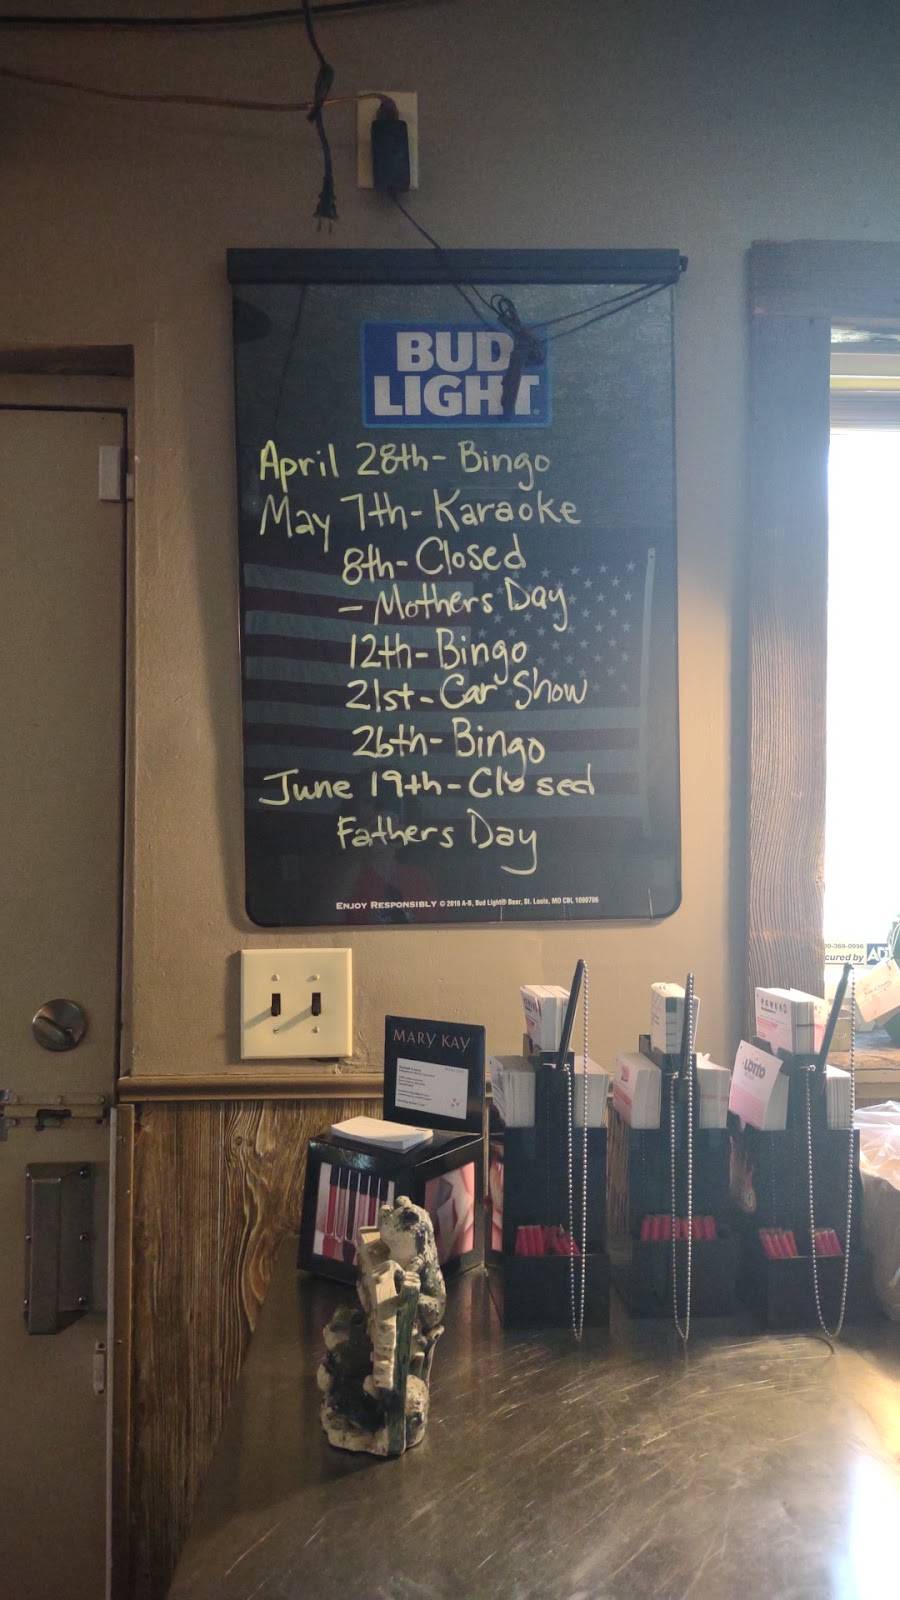 BUD
LIGHT
April 28th- Bingo
May 7th- Karaoke
8th- Closed
- Mothers Day
12th- Bingo
21st- Car Show
26th- Bingo
June 19th- Closed
Fathers Day
ENJOY RESPONSIBLY © 2016 A-B, Bud Light® Beer, St. Louis, MO
MARY KAY
LOTTO
cured by ADT